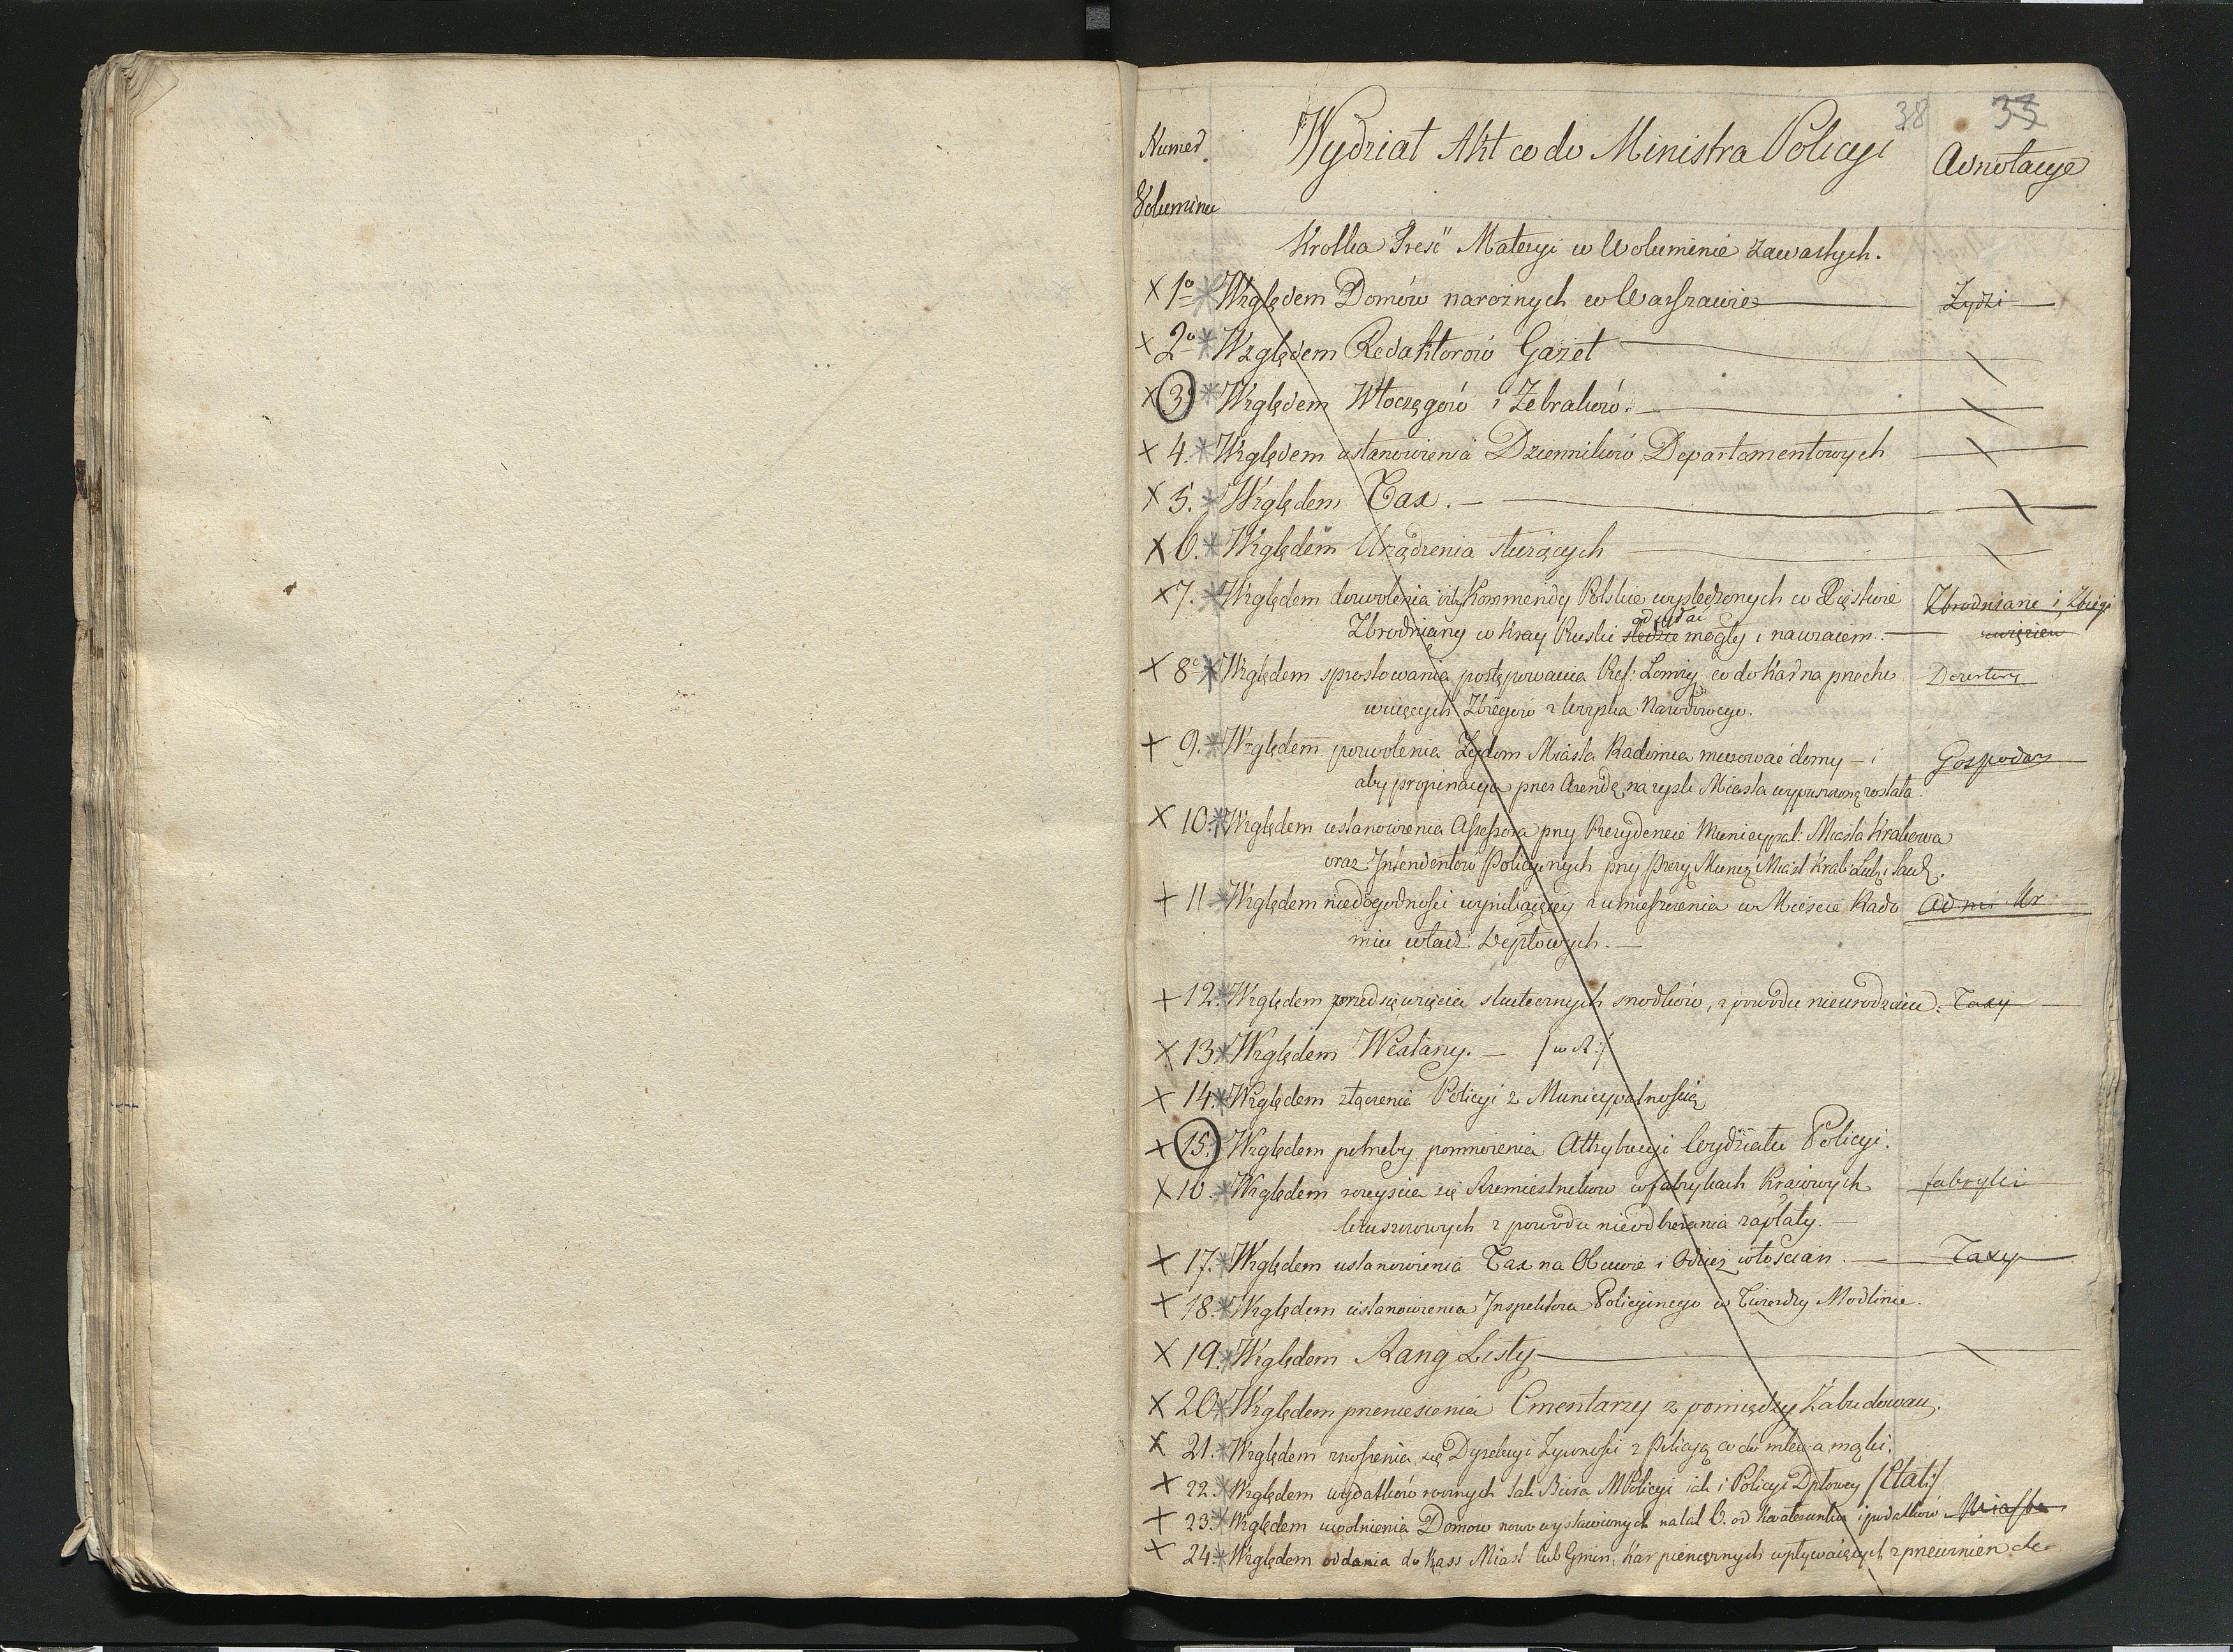 38 35
Numer
Voluminu
Wydział Akt co do Ministra Policyi
Adnotacye
Krotka Treść Materyi w Woluminie zawartych.
× 1o Względem Domów narożnych w Warszawie Żydzi
× 2o Względem Redaktorów Gazet
× 3o Względem Włoczęgów i Żebraków.
× 4. Względem ustanowienia Dzienników Departamentowych
× 5. Względem Tax.
× 6. Względem Urządzenia służących
× 7. Względem dozwolenia Kommendy Polskie wyśledzonych w Xięstwie Zbrodniarze i Zbiegi
odsyłać
Zbrodniarzy w Kray Ruski śledzie mogły i nawzaiem. więzien
× 8o Względem sprostowania postępowania Pref: Łomży: co do Kar na przecho Dezertery
wuiących Zbiegow z Woyska Narodowego.
× 9. Względem pozwolenia Żydom Miasta Radomia murować domy – i Gospodar
aby propinacya przez Arendę na zysk Miasta wypuszczoną została.
× 10. Względem ustanowienia Assessora przy Prezydencie Municypal: Miasta Krakowa
oraz Intendentów Policyinych przy Prezy: Munic: Miast Krak: Lub: i Sand.
× 11 Względem niedogodności wynikaiącey z umieszczenia w Mieście Rado Admi Kr
miu władz Deptowych.
× 12. Względem przedsięwzięcia skutecznych srodków, z powodu nieurodzaiu. Taxy
× 13 Względem Weatany. – / w A:/
× 14. Względem złączenia Policyi z Municypalnością
× 15. Względem potrzeby pomnożenia Attrybucyi Wydziału Policyi.
× 16. Względem rozeyscia się Rzemieslnikow w fabrykach Kraiowych fabryki
kruszcowych z powodu nieodbierania zapłaty. –
× 17. Względem ustanowienia Tax na Obuwie i Odzież włościan. Taxy
× 18. Względem ustanowienia Inspektora Policyinego w Twierdzy Modlinie.
× 19. Względem Rang Listy
× 20 Względem przeniesienia Cmentarzy z pomiędzy Zabudowań.
× 21. Względem znoszenia się Dyrekcyi Żywności z Policyą co do mlewa mąki.
× 22. Względem wydatków rocznych tak Biura MPolicyi iak i Policyi Dptowey /Etat:/
× 23. Względem uwolnienia Domow nowo wystawionych na lat 6. od Kwaterunku i podatków Miasta
× 24. Względem oddania do Kass Miast lub Gmin, Kar pieniężnych wpływaiących z przewinien